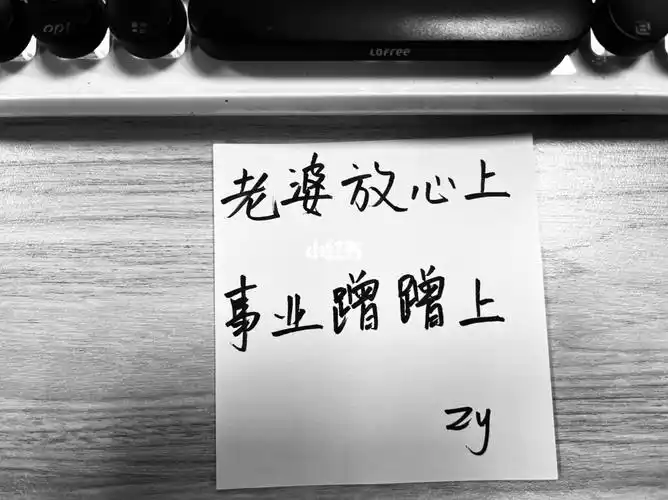 opt
LOFREE
老婆放心上
小红书
事业蹭蹭上
zy